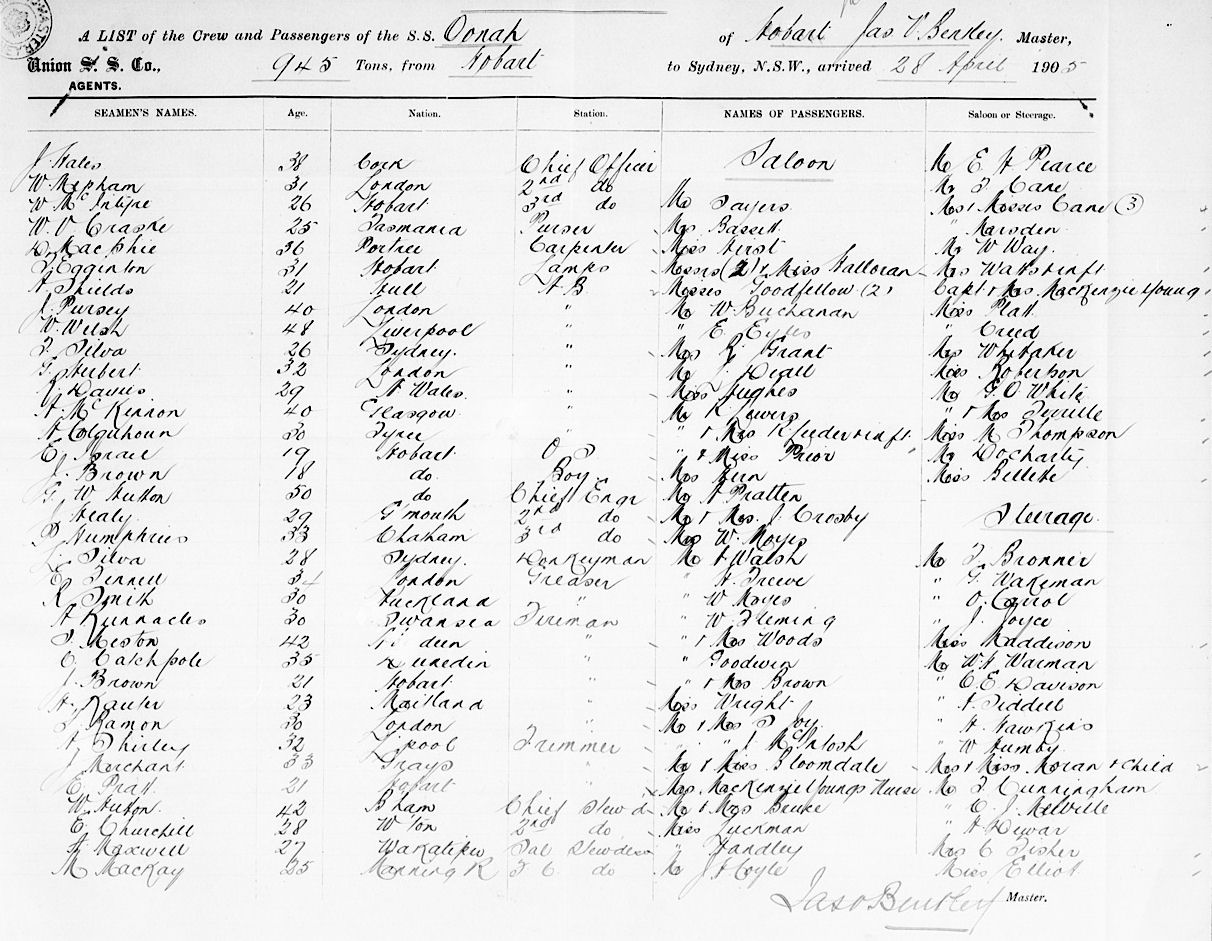 A LIST of the Crew and Passengers of the S.S. Oonah of Hobart Jas V. Bentley. Master,
Union S. S. Co., AGENTS. 945 Tons, from Hobart to Sydney, N.S.W., arrived 28 April 1905
SEAMEN'S NAMES. Age. Nation. Station. NAMES OF PASSENGERS. Saloon or Steerage.
J. Hales 38 Cork Chief Officer Saloon Mr E H Pearce
W. Mepham 31 London 2nd do Mr Cane
W. McIntyre 26 Hobart 3rd do Mr Sayers Mrs & Misses Cane (3)
W. V. Craske 25 Tasmania Purser Mrs Bassett " Marsden
D. MacPhie 36 Portree Carpenter Miss Hirst Mr W Way
Egginton 31 Hobart Lamps Messrs (2) & Miss Halloran Mrs Watts & inft
H. Shields 21 Hull A B Misses Goodfellow (2) Capt & Mrs MacKenzie Young
J. Pursey 40 London " Mr W Buchanan Miss Platt
W. Welsh 48 Liverpool " " E. " Creed
Silva 26 Sydney. " Mrs Grant Mrs Whitaker
G. Herbert 32 London " Mr Miss Robertson
Davies 29 N Wales. " Miss Hughes Mr G. O White
H. McKinnon 40 Glasgow " Mr R Lowers " & Mrs
H Colquhoun 30 " " & Mrs & inft. Miss M Thompson
E. Israel 19 Hobart O S " & Miss Prior Mr Docharty
J. Brown 18 do. Boy Mrs Fern Miss Billette
G. W Hutton 50 do Chief Engr Mr A Pratten
J Healy 29 G'mouth 2nd do Mr & Mrs. J. Crosby Steerage.
Humphries 33 Chaham 3rd do Mrs W. Moyes
Silva 28 Sydney. Donkeyman Mr A Walsh Mr Bronner
Tennell 34 London Greaser " H. " G. Wakeman
R. Smith 30 Auckland " " W Moyes " O. Carrol
H Runnacles 30 Swansea Fireman " W Fleming " J. Joyce
Meston 42 " " & Mrs Woods Miss Maddison
C Catchpole 35 Dunedin " " Goodwin Mr W H Warman
J. Brown 21 Hobart " " & Mrs Brown " C. E. Davison
H. 23 Maitland " Miss Wright " H.
Ramon 30 London " Mr & Mrs Joy. " H Hawkins
A. Shirley 32 L'pool Trimmer " " J. McIntosh " W Humby
J. Merchant 33 Grays " Mr & Miss Bloomdale Mrs & Miss Moran & Child
E. Pratt 21 Hobart " Mrs MacKenzie Youngs Nurse Mr Cunningham
W. Hutton 42 B'ham Chief Stewd Mr & Mrs " E. J. Melville
E. Churchill 28 W'ton 2nd do Miss Luckman " H Dewar
Maxwell 27 Wakatipu Sal Stewdess " Handley Mrs C Fisher
M. MacKay 25 Manning R do Mr J H Coyle Miss Elliott
Jas V Bentley Master.